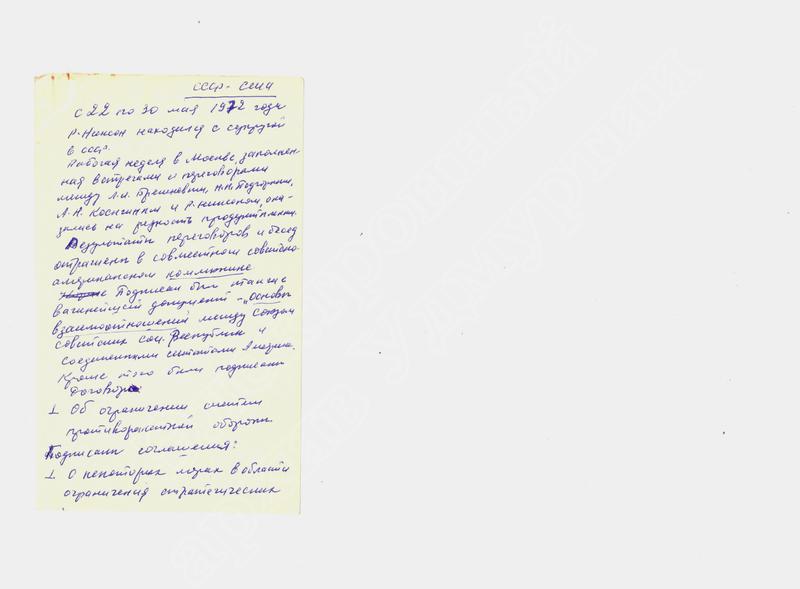 СССР - США
с 22 по 30 мая 1972 года
Р. Никсон находился с супругой
в СССР.
Рабочая неделя в Москве, заполнен-
ная встречами и переговорами
между Л.И. Брежневым, Н.В. Подгорным,
А.Н. Косыгиным и Р. Никсоном, ока-
залась на редкость продуктивной.
Результаты переговоров и бесед
отражены в совместном советско-
американском коммюнике
Подписан был также
важнейший документ - „Основы
взаимоотношений между Союзом
Советских Соц. Республик и
Соединенными Штатами Америки.
Кроме того были подписаны
Договор
1 Об ограничении систем
противоракетной обороны.
Подписаны соглашения:
1 О некоторых мерах в области
ограничения стратегических